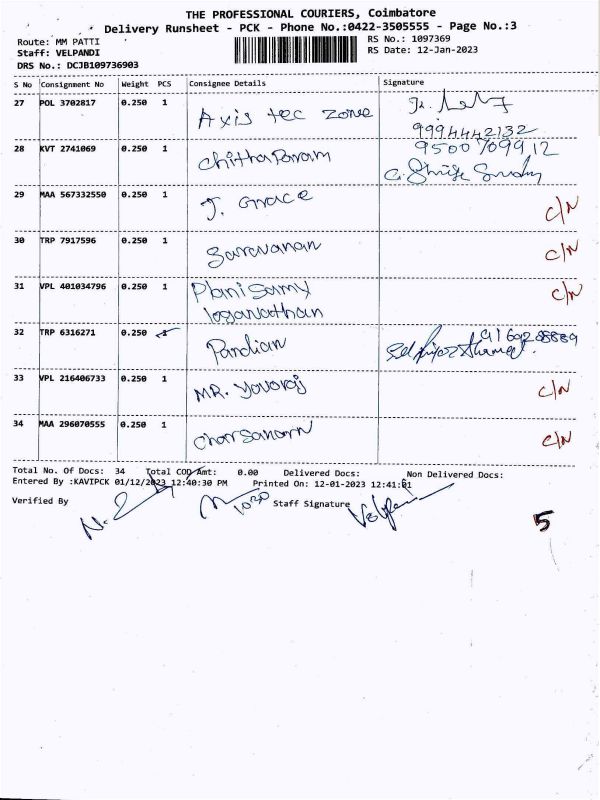 THE PROFESSIONAL COURIERS, Coimbatore
Delivery Runsheet - PCK - Phone No.:0422-3505555 - Page No.:3
Route: MM PATTI
RS No.: 1097369
Staff: VELPANDI
RS Date: 12-Jan-2023
DRS No.: DCJB109736903
S No Consignment No Weight PCS Consignee Details Signature
27 POL 3702817 0.250 1 Axis tec zone
9994442132
28 KVT 2741069 0.250 1 ChithaParam 9500709912
29 MAA 567332550 0.250 1 J. Grace C/N
30 TRP 7917596 0.250 1 Saravanan C/N
31 VPL 401034796 0.250 1 Planisamy C/N
loganathan
32 TRP 6316271 0.250 1 Pandian
33 VPL 216406733 0.250 1 MR. Yovoraj C/N
34 MAA 296070555 0.250 1 C/N
Total No. Of Docs: 34 Total COD Amt: 0.00 Delivered Docs: Non Delivered Docs:
Entered By :KAVIPCK 01/12/2023 12:40:30 PM Printed On: 12-01-2023 12:41:01
Verified By Staff Signature Velpandi
5